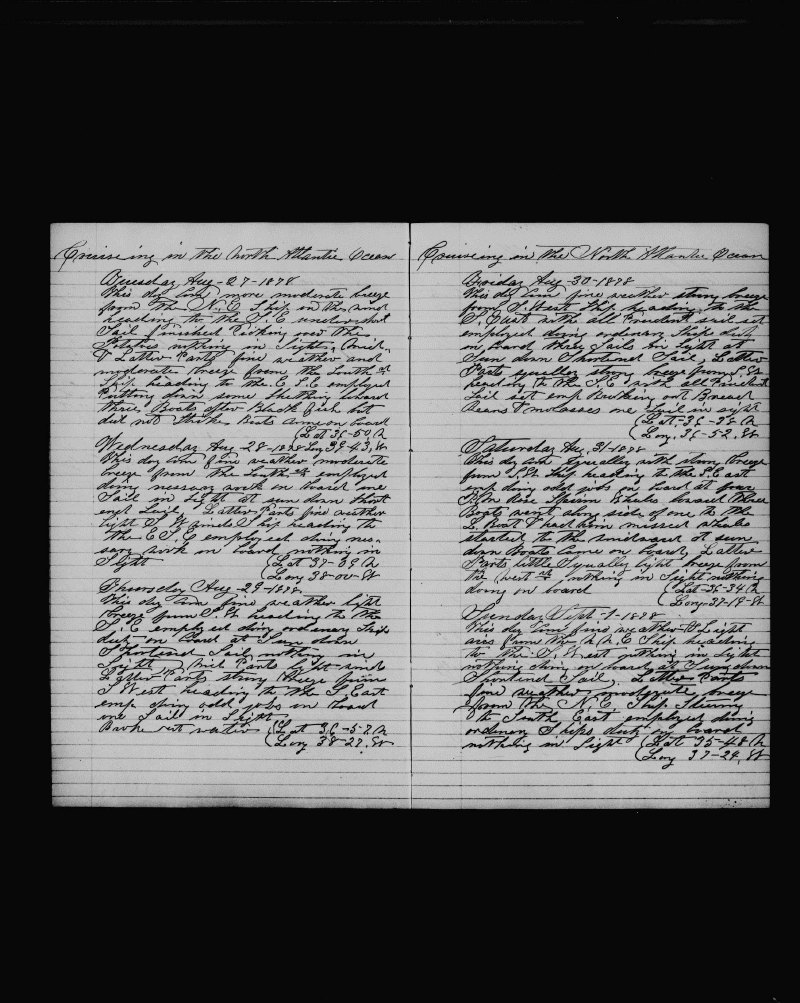 Cruiseing in the North Atlantic Ocean
Tuesday Aug-27-1878
This day Com more moderate breeze
from the N.E Ship in the wind
heading to the S.E under short
Sail finished Picking over the
Potatoes nothing in Sight, Mid,
& Latter Parts fine weather and
moderate breeze from the South
Ship heading to the E.S.E employed
Putting down some Sheething board
three Boats after Black fish but
did not Strike Boats came on board
(Lat 36-50, N
Wednesday Aug-28-1878 Long 39-43, W
This day Com fine weather moderate
breeze from the South employed
doing nessary work on board one
Sail in sight at sun down Short
end Sail, Latter Parts fine weather
light S.W winds Ship heading to
the E.S.E employed doing nes-
sary work on board nothing in
Sight (Lat 37-09 N
(Long 38-00-W
Thursday Aug-29-1878
This day Com fine weather light
breeze from S.W heading to the
S.E employed doing ordinary Ship
duty on board at Sun down
Shortened Sail nothing in
Sight, Mid Parts light wind
Latter Parts strong breeze from
S West heading to the S East
emp doing odd jobs on board
one Sail in Sight
Broke out water (Lat 36-52 N
(Long 38-27, W
Cruiseing in the North Atlantic Ocean
Friday Aug-30-1878
This day Com fine weather strong breeze
from S.West Ship heading to the
S. East with all sail set
employed doing ordinary Ship duty
on board three Sails in Sight at
Sun down Shortened Sail, Latter
Parts squally strong breeze from S.W
heading to the S.E with all
Sail set emp Breaking out Bread
Beans & molasses one Sail in sight
(Lat-36-38 N
(Long, 36-52, W
Saturday Aug 31-1878
This day Com Squally with strong breeze
from S.W Ship heading to the S.East
emp doing odd jobs on board at four
P.M Rose Sperm Whales lowered three
Boats went along side of one to the
L. Boat & had him missed whales
started to the windward at sun
down Boats Came on board, Latter
Parts little Squally light breeze from
the West nothing in Sight nothing
doing on board (Lat-36-34 N
(Long-37-19-W
Sunday Sept-1-1878
This day Com fine weather & Light
airs from the N.N.E Ship heading
to the S. West nothing in Sight
nothing doing on board at Sun down
Shortened Sail, Latter Parts
fine weather moderate breeze
from the N.E. Ship Steering
to South East employed doing
ordinary Ships duty on board
nothing in Sight (Lat 35-48 N
(Long 37-24, W